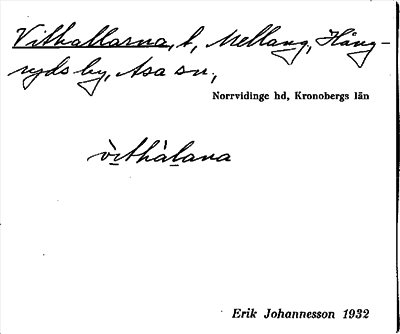 Vithallarna, t, Mellang, Hång-
ryds by, Asa sn,
Norrvidinge hd, Kronobergs län
vìthàlana
Erik Johannesson 1932